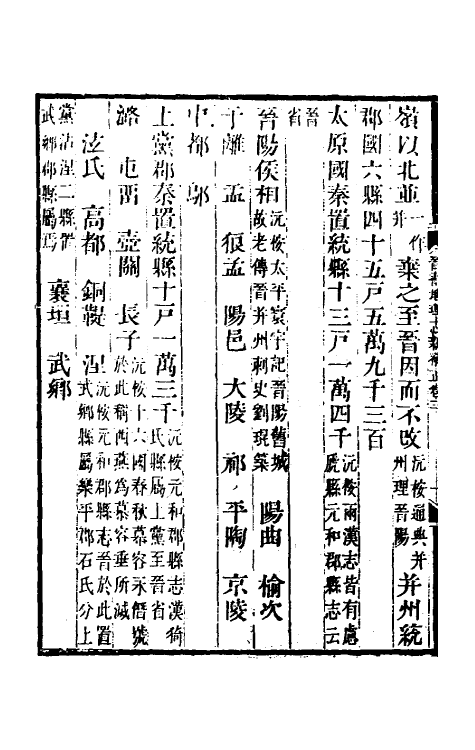 嶺以北並一作并棄之至晉因而不改沅按通典并州理晉陽并州統
郡國六縣四十五戶五萬九千三百
太原國秦置統縣十三戶一萬四千沅按兩漢志皆有慮虒縣元和郡縣志云
晉省
晉陽侯相沅按太平寰宇記晉陽舊城故老傳晉并州刺史劉琨築 陽曲 榆次
于離 盂 狼孟 陽邑 大陵 祁 平陶 京陵
中都 鄔
上黨郡秦置統縣十戶一萬三千沅按元和郡縣志漢猗氏縣屬上黨至晉省
潞 屯留 壺關 長子沅按十六國春秋慕容永僭號於此稱西燕為慕容垂所滅
泫氏 高都 銅鞮 涅沅按元和郡縣志晉於此置武鄉縣屬樂平郡石氏分上
黨沾涅二縣置武鄉郡縣屬焉 襄垣 武鄉